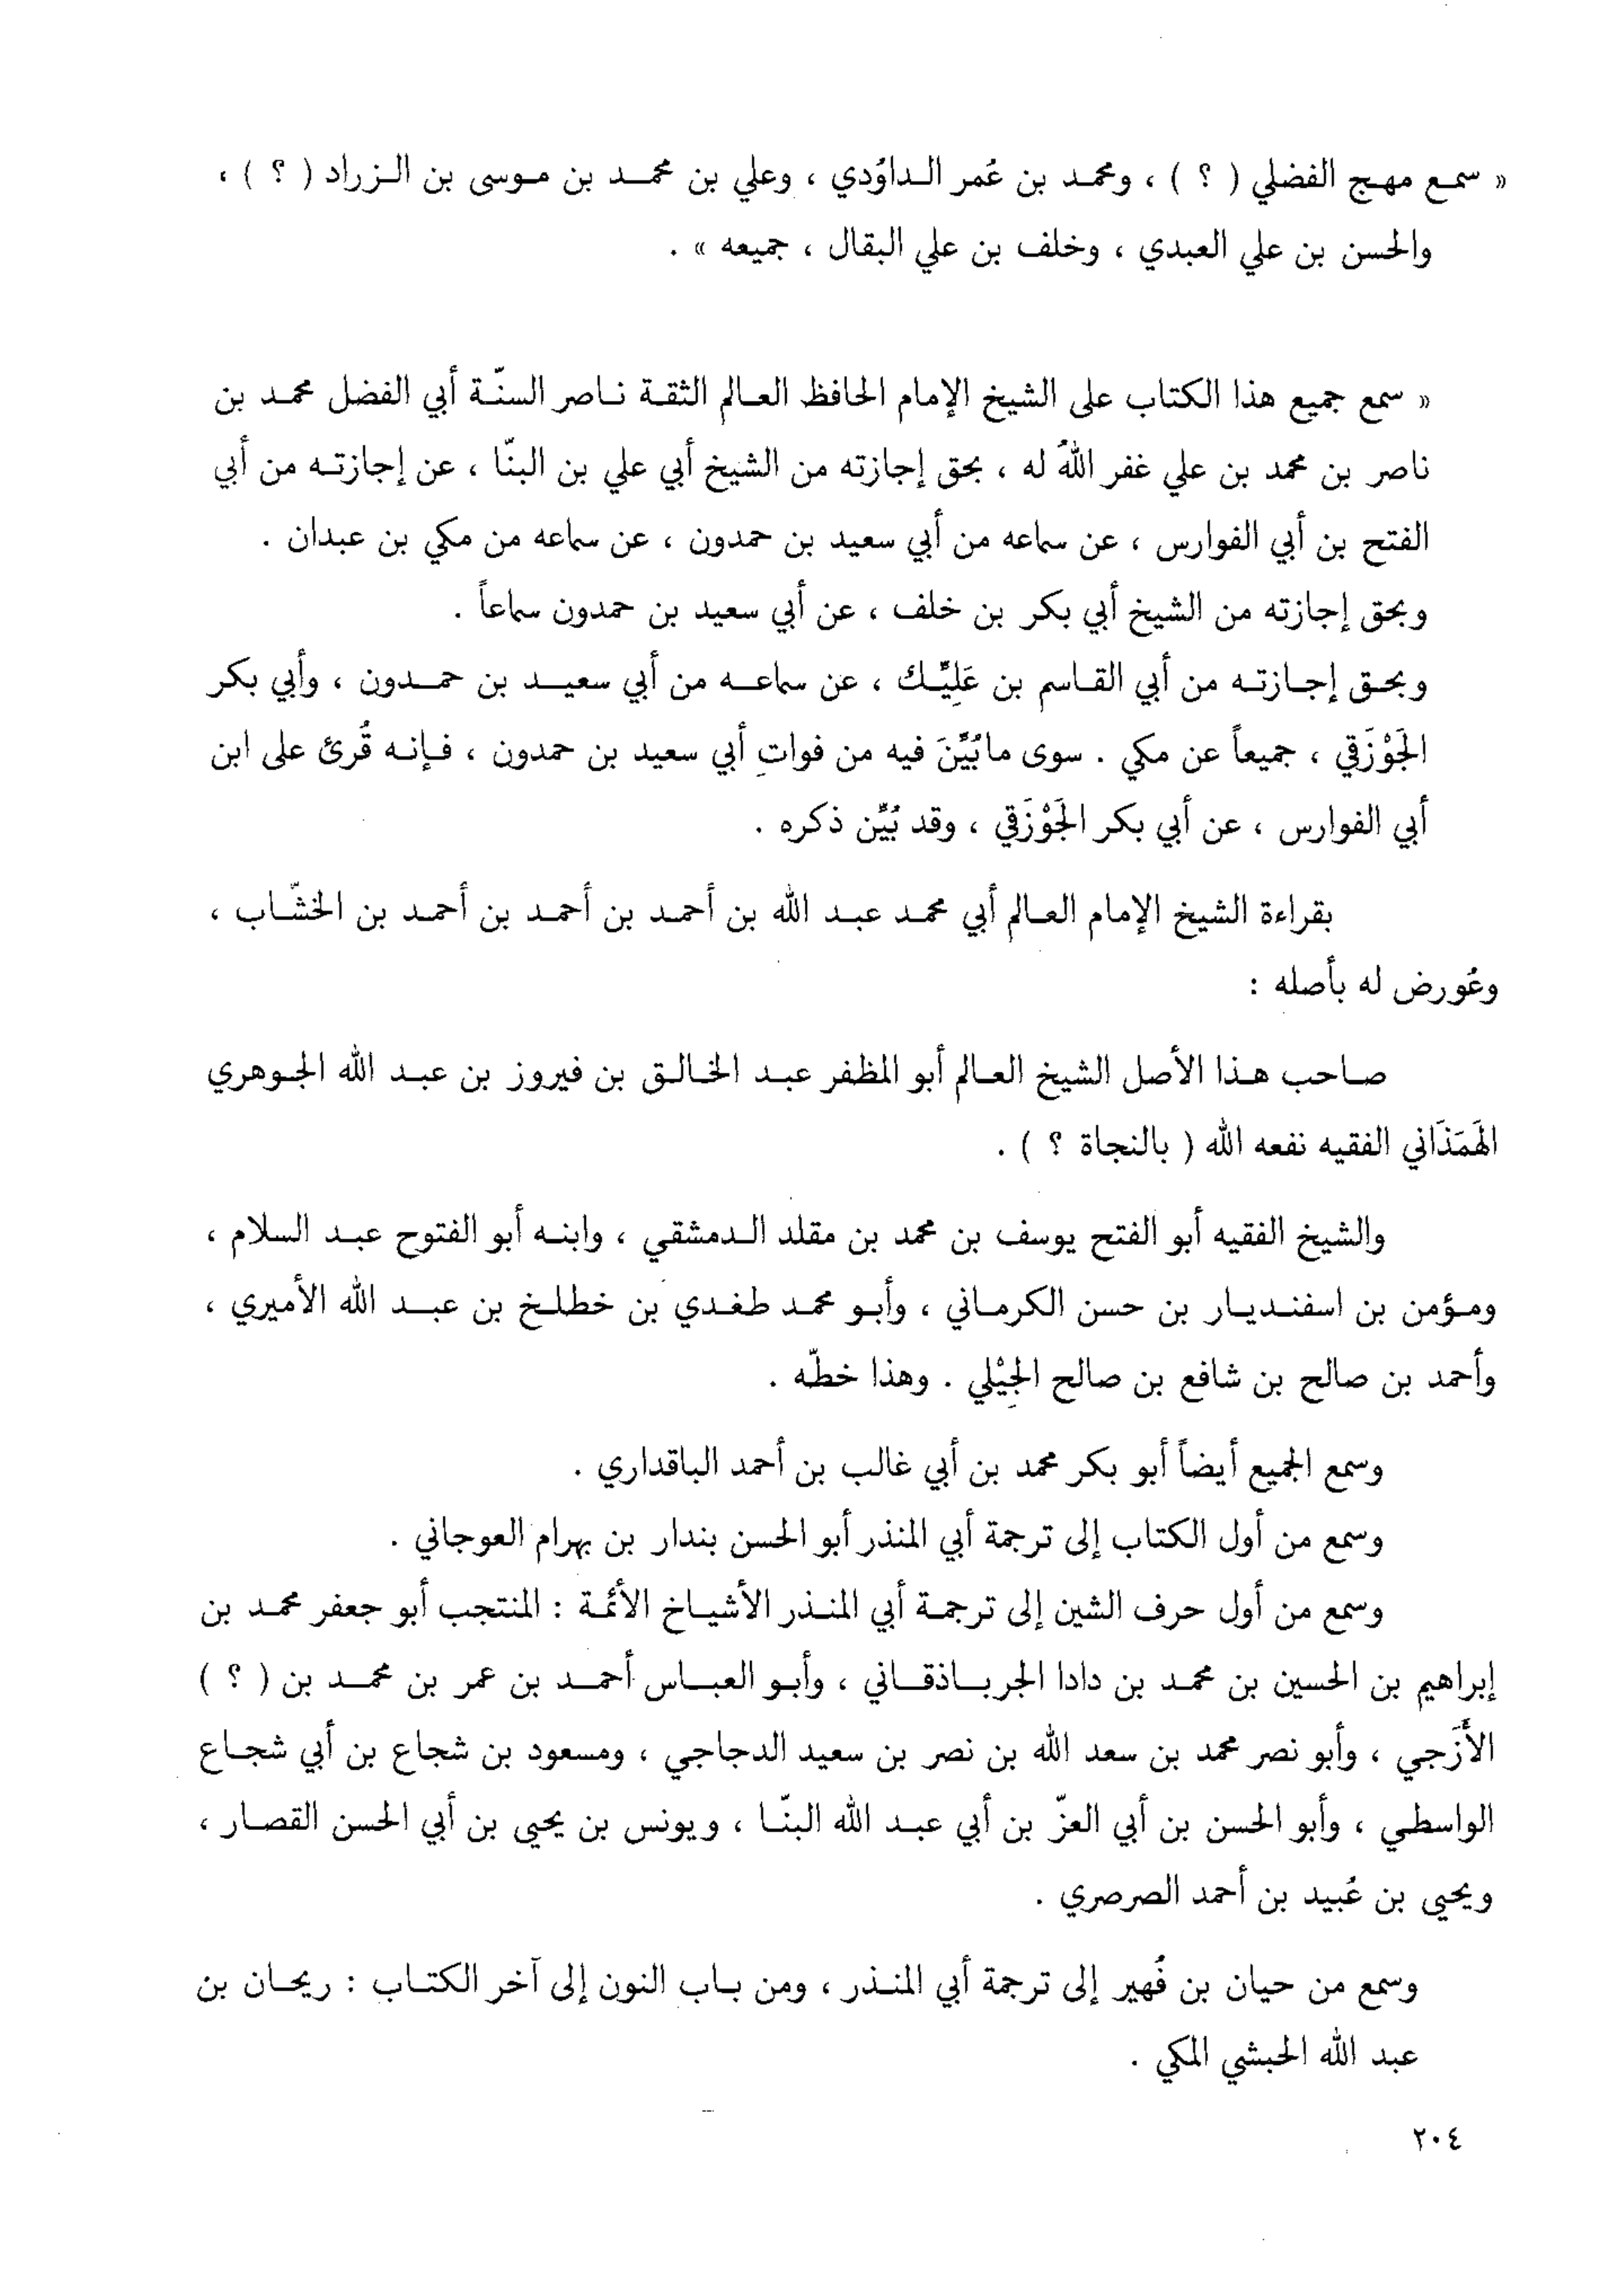 « سمع مهج الفضلي ( ؟ ) ، ومحمد بن عُمر الداوُدي ، وعلي بن محمد بن موسى بن الزراد ( ؟ ) ،
والحسن بن علي العبدي ، وخلف بن علي البقال ، جميعه » .
« سمع جميع هذا الكتاب على الشيخ الإمام الحافظ العالم الثقة ناصر السنّة أبي الفضل محمد بن
ناصر بن محمد بن علي غفر اللهُ له ، بحق إجازته من الشيخ أبي علي بن البنّا ، عن إجازته من أبي
الفتح بن أبي الفوارس ، عن سماعه من أبي سعيد بن حمدون ، عن سماعه من مكي بن عبدان .
وبحق إجازته من الشيخ أبي بكر بن خلف ، عن أبي سعيد بن حمدون سماعاً .
وبحق إجازته من أبي القاسم بن عَلِيَّك ، عن سماعه من أبي سعيد بن حمدون ، وأبي بكر
الجَوْزَقي ، جميعاً عن مكي . سوى مابُيِّنَ فيه من فواتِ أبي سعيد بن حمدون ، فإنه قُرئ على ابن
أبي الفوارس ، عن أبي بكر الجَوْزَقي ، وقد بُيِّن ذكره .
بقراءة الشيخ الإمام العالم أبي محمد عبد الله بن أحمد بن أحمد بن أحمد بن الخشّاب ،
وعُورض له بأصله :
صاحب هذا الأصل الشيخ العالم أبو المظفر عبد الخالق بن فيروز بن عبد الله الجوهري
الهَمَذَاني الفقيه نفعه الله ( بالنجاة ؟ ) .
والشيخ الفقيه أبو الفتح يوسف بن محمد بن مقلد الدمشقي ، وابنه أبو الفتوح عبد السلام ،
ومؤمن بن اسفنديار بن حسن الكرماني ، وأبو محمد طغدي بن خطلخ بن عبد الله الأميري ،
وأحمد بن صالح بن شافع بن صالح الجِيْلي . وهذا خطّه .
وسمع الجميع أيضاً أبو بكر محمد بن أبي غالب بن أحمد الباقداري .
وسمع من أول الكتاب إلى ترجمة أبي المنذر أبو الحسن بندار بن بهرام العوجاني .
وسمع من أول حرف الشين إلى ترجمة أبي المنذر الأشياخ الأئمة : المنتجب أبو جعفر محمد بن
إبراهيم بن الحسين بن محمد بن دادا الجرباذقاني ، وأبو العباس أحمد بن عمر بن محمد بن ( ؟ )
الأَزَجي ، وأبو نصر محمد بن سعد الله بن نصر بن سعيد الدجاجي ، ومسعود بن شجاع بن أبي شجاع
الواسطي ، وأبو الحسن بن أبي العزّ بن أبي عبد الله البنّا ، ويونس بن يحيى بن أبي الحسن القصار ،
ويحيى بن عُبيد بن أحمد الصرصري .
وسمع من حيان بن فُهير إلى ترجمة أبي المنذر ، ومن باب النون إلى آخر الكتاب : ريحان بن
عبد الله الحبشي المكي .
٢٠٤